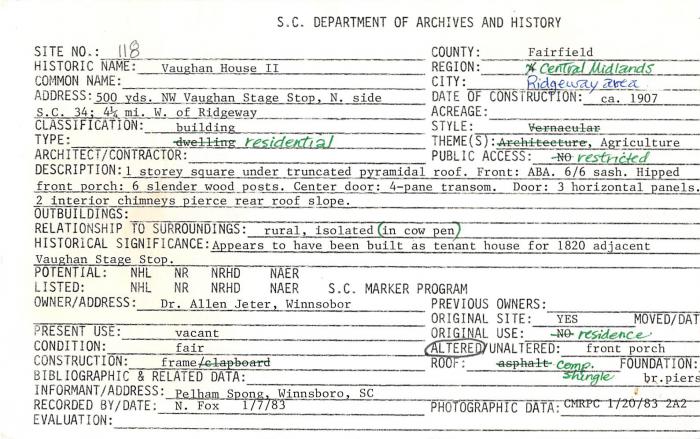 S.C. DEPARTMENT OF ARCHIVES AND HISTORY
SITE NO.: 118 COUNTY: Fairfield
HISTORIC NAME: Vaughan House II REGION: * Central Midlands
COMMON NAME: CITY: Ridgeway area
ADDRESS: 500 yds. NW Vaughan Stage Stop, N. side DATE OF CONSTRUCTION: ca. 1907
S.C. 34; 4¼ mi. W. of Ridgeway ACREAGE:
CLASSIFICATION: building STYLE: Vernacular
TYPE: dwelling residential THEME(S): Architecture, Agriculture
ARCHITECT/CONTRACTOR: PUBLIC ACCESS: NO restricted
DESCRIPTION: 1 storey square under truncated pyramidal roof. Front: ABA. 6/6 sash. Hipped
front porch: 6 slender wood posts. Center door: 4-pane transom. Door: 3 horizontal panels.
2 interior chimneys pierce rear roof slope.
OUTBUILDINGS:
RELATIONSHIP TO SURROUNDINGS: rural, isolated (in cow pen)
HISTORICAL SIGNIFICANCE: Appears to have been built as tenant house for 1820 adjacent
Vaughan Stage Stop.
POTENTIAL: NHL NR NRHD NAER
LISTED: NHL NR NRHD NAER S.C. MARKER PROGRAM
OWNER/ADDRESS: Dr. Allen Jeter, Winnsobor PREVIOUS OWNERS:
ORIGINAL SITE: YES MOVED/DAT
PRESENT USE: vacant ORIGINAL USE: NO residence
CONDITION: fair ALTERED/UNALTERED: front porch
CONSTRUCTION: frame/clapboard ROOF: asphalt comp. shingle FOUNDATION:
BIBLIOGRAPHIC & RELATED DATA: br.piers
INFORMANT/ADDRESS: Pelham Spong, Winnsboro, SC
RECORDED BY/DATE: N. Fox 1/7/83 PHOTOGRAPHIC DATA: CMRPC 1/20/83 2A2
EVALUATION: